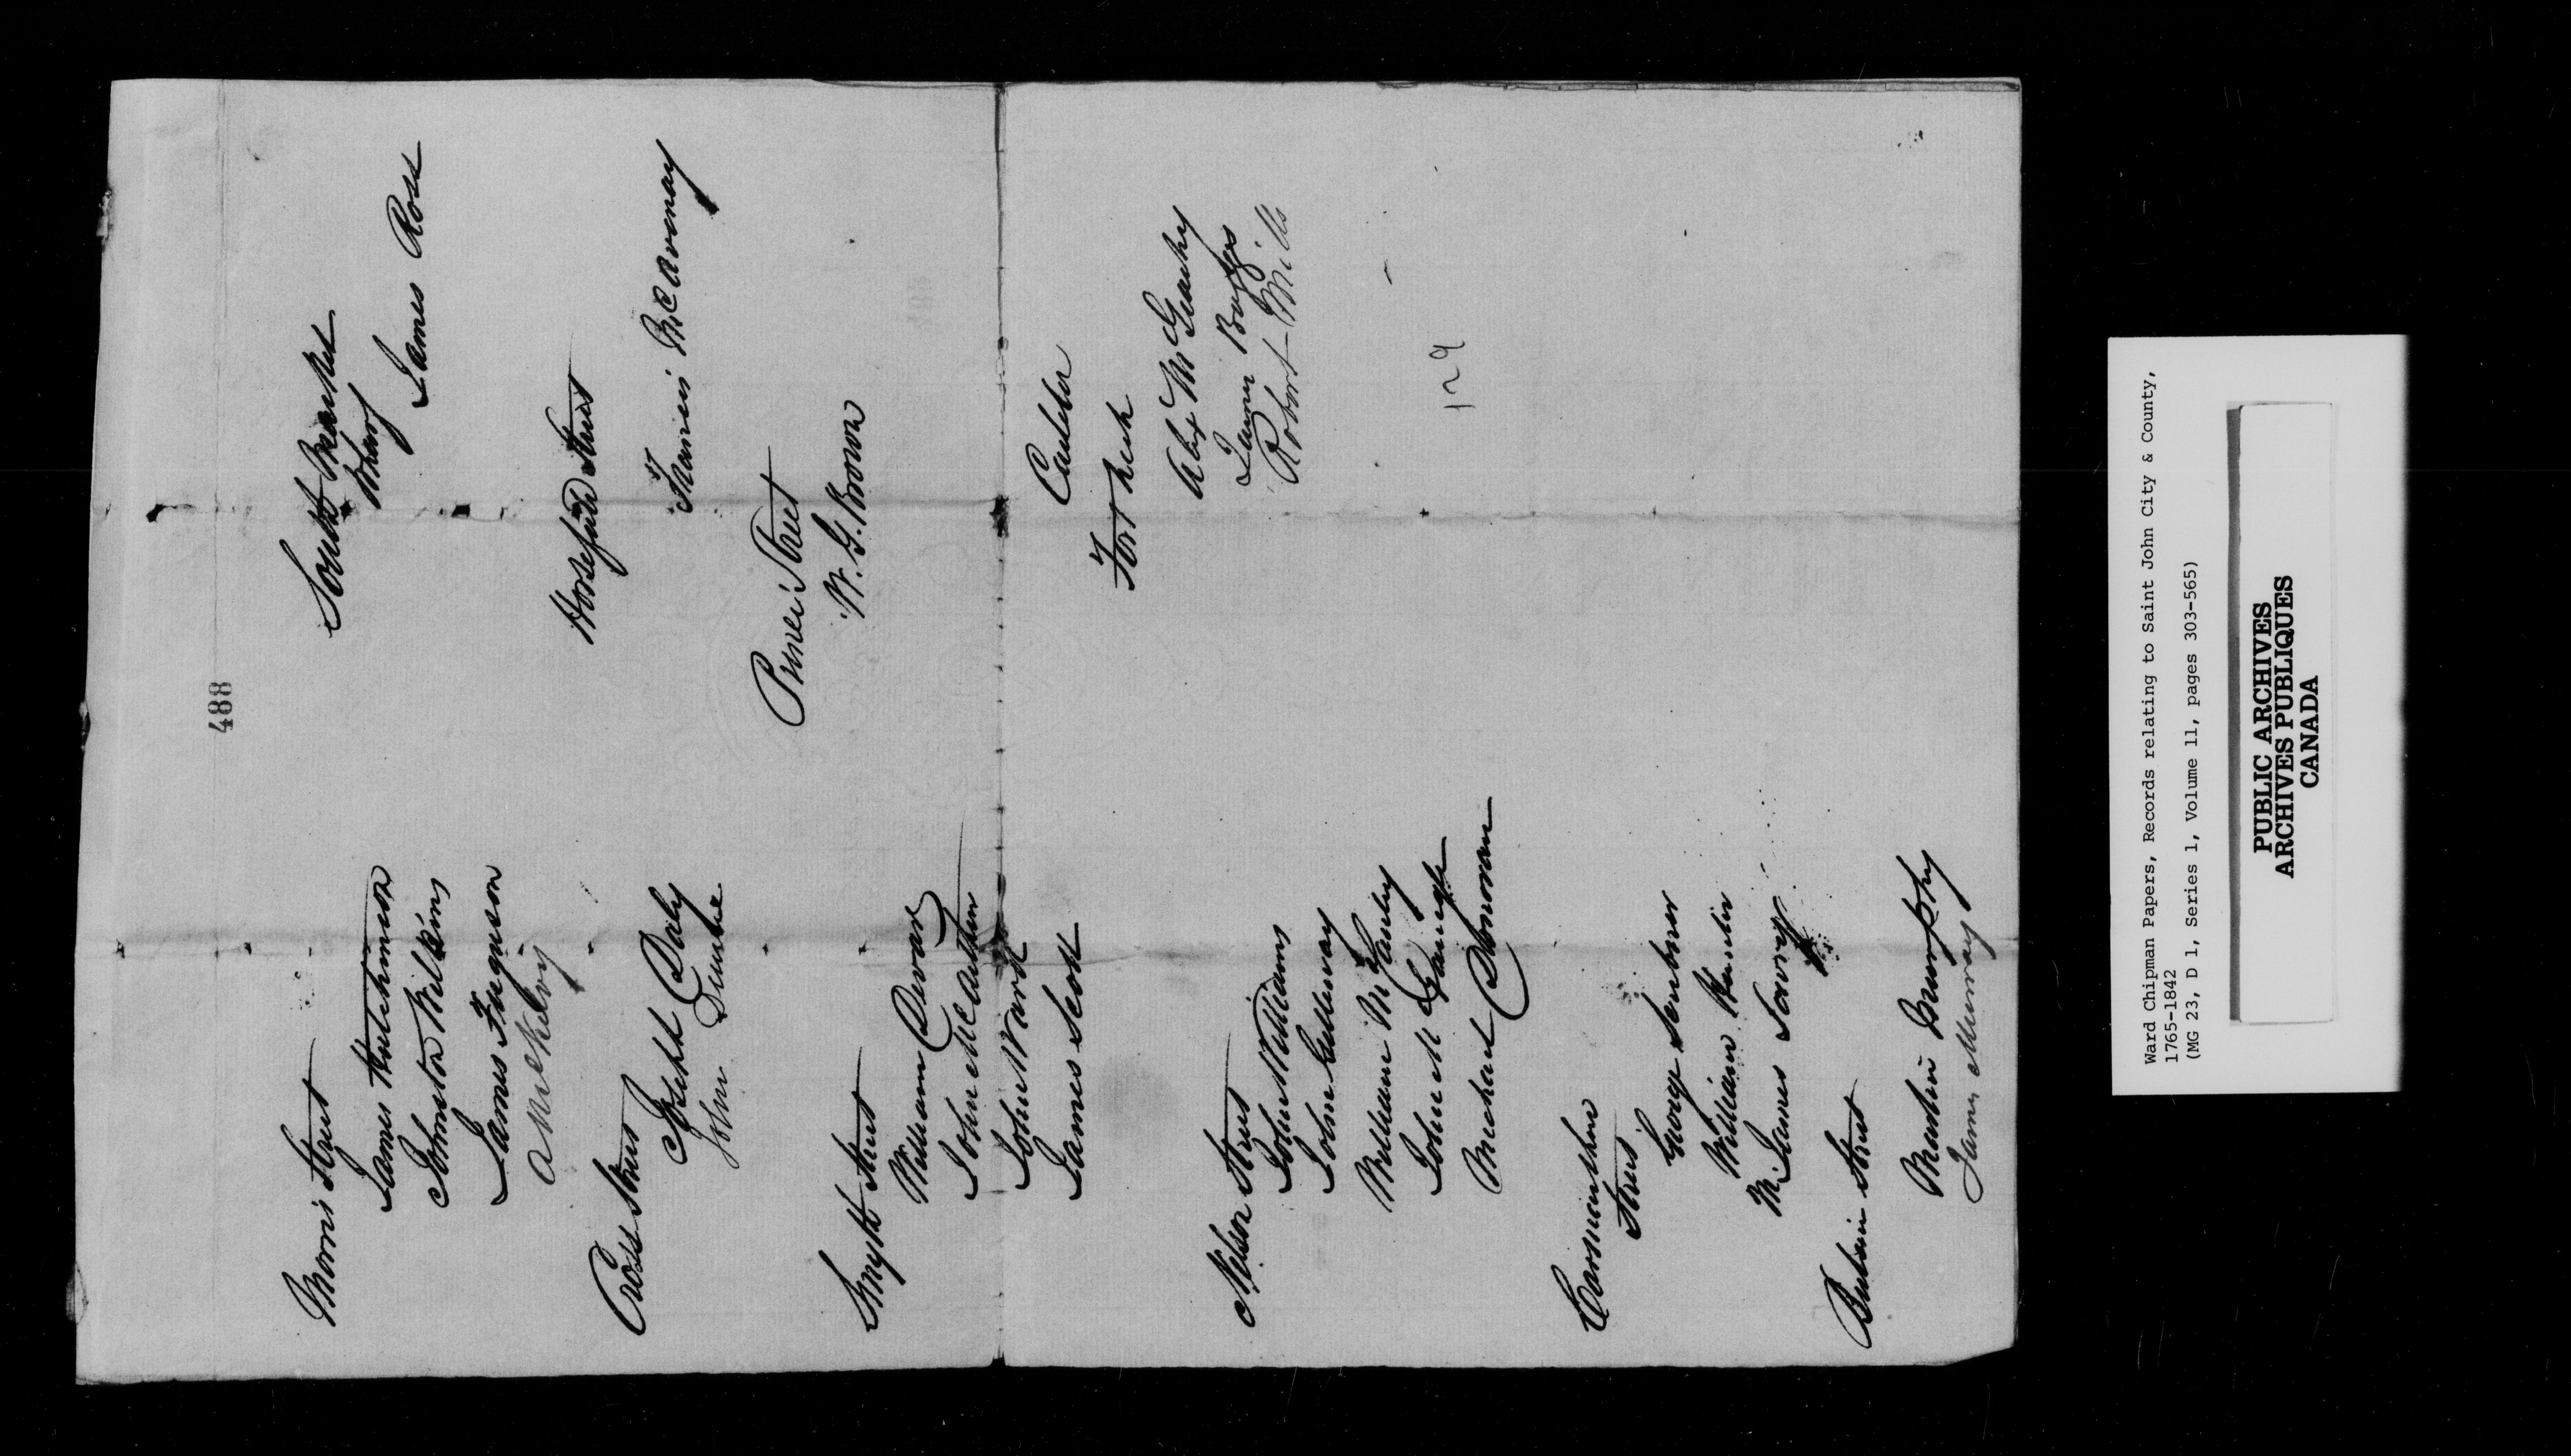 488
Morris Street
James Hutchinson
Johnston Wilkins
James Ferguson
A McKelvy
Cross Street
Joseph Daly
John Dunbre
Smyth Street
William Devar
John McArthur
John Ward
James Scott
Nelson Street
John Williams
John Calloway
William McGauley
John M
Michael Donovan
Carmarthen
Street
George
William
McJames
Britain Street
Martin Brumphy
James Murray
South Market
Wharf
James Ross
Horsefield Street
Francis McAvenay
Princes Street
W. G. Brown
Carleton
For
Alex McGeachy
James Boggs
Robert Mills
129
Ward Chipman Papers, Records relating to Saint John City & County,
1765-1842
(MG 23, D 1, Series 1, Volume 11, pages 303-565)
PUBLIC ARCHIVES
ARCHIVES PUBLIQUES
CANADA